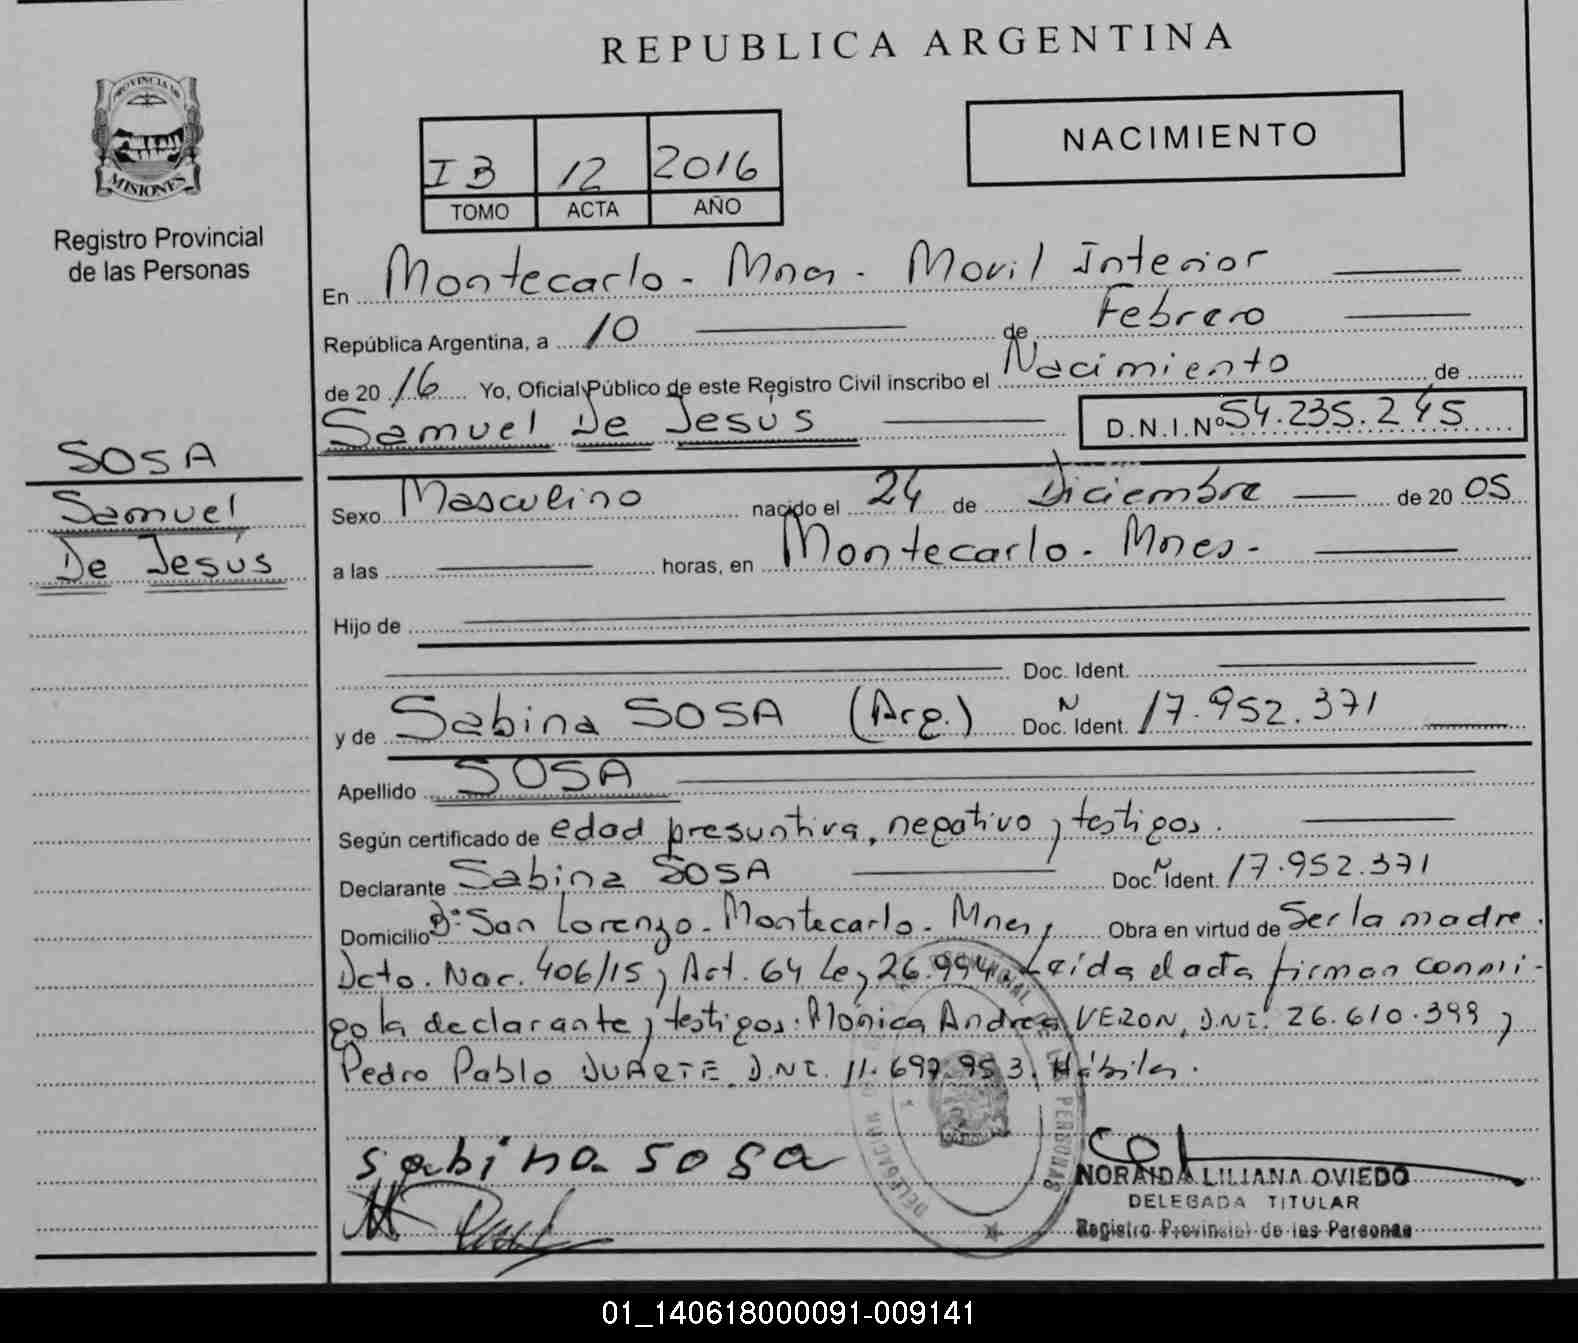 REPUBLICA ARGENTINA
PROVINCIA DE
MISIONES
Registro Provincial
de las Personas
NACIMIENTO
I B 12 2016
TOMO ACTA AÑO
En Montecarlo - Mnes - Movil Interior
República Argentina, a 10 de Febrero
de 20 16 Yo, Oficial Público de este Registro Civil inscribo el Nacimiento de
Samuel De Jesús D.N.I.Nº 54.235.245
SOSA
Samuel
De Jesús
Sexo Masculino nacido el 24 de Diciembre de 20 05
a las horas, en Montecarlo - Mnes -
Hijo de
Doc. Ident.
y de Sabina SOSA (Arg.) Doc. N Ident. 17.952.371
Apellido SOSA
Según certificado de edad presuntiva, negativo y testigos.
Declarante Sabina SOSA Doc. N Ident. 17.952.371
Domicilio Bº San Lorenzo - Montecarlo - Mnes, Obra en virtud de Ser la madre.
Dcto. Nac. 406/15 y Art. 64 Ley 26.994. Leída el acta firman conmi-
go la declarante y testigos: Mónica Andrea VERON, D.N.I. 26.610.399 y
Pedro Pablo DUARTE D.N.I. 11.697.953. Hábiles.
sabina sosa
NORAIDA LILIANA OVIEDO
DELEGADA TITULAR
Registro Provincial de las Personas
DELEGACION
PERSONAS
01_140618000091-009141